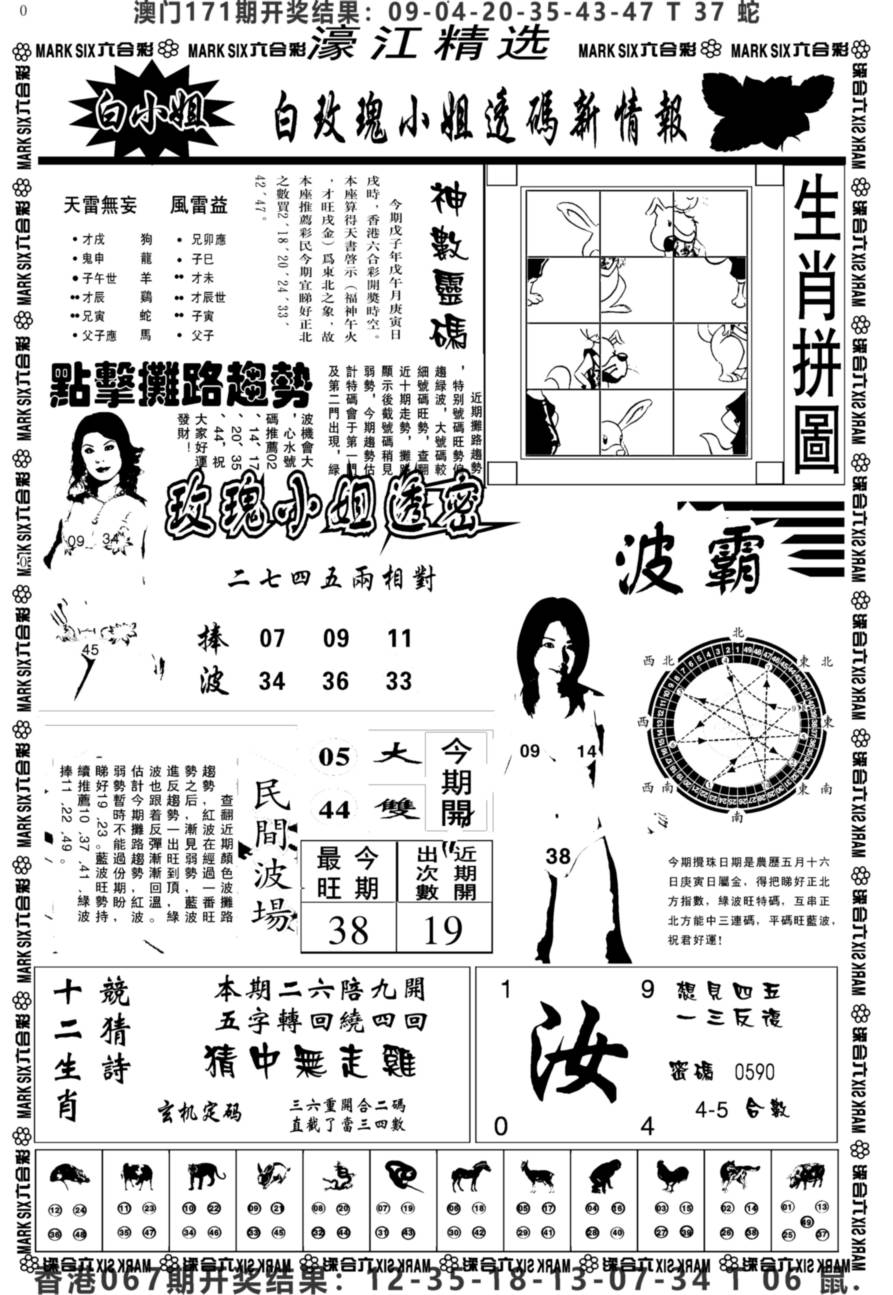 0
澳门171期开奖结果：09-04-20-35-43-47 T 37 蛇
MARK SIX六合彩 MARK SIX六合彩 濠江精选 MARK SIX六合彩 MARK SIX六合彩
白小姐
白玫瑰小姐透碼新情報
天雷無妄 風雷益
才戌 狗 兄卯應
鬼申 龍 子巳
子午世 羊 才未
才辰 鷄 才辰世
兄寅 蛇 子寅
父子應 馬 父子
神數靈碼
今期戊子年戊午月庚寅日
戌時，香港六合彩開獎時空。
本座算得天書啓示（福神午火
，才旺戌金）爲東北之象，故
本座推薦彩民今期宜睇好正北
之數買2 ′18 ′20 ′24 ′33 ′
42 ′47。
生肖拼圖
點擊攤路趨勢
近期攤路趨勢
，特别號碼旺勢偏
趨緑波，大號碼較
細號碼旺勢，查翻
近十期走勢，攤路
顯示後截號碼稍見
弱勢，今期趨勢估
計特碼會于第一門
及第二門出現，緑
波機會大
，心水號
碼推薦02
、14、17
、20、35
、44，祝
大家好運
發財！
玫瑰小姐透密
09 34
45
二七四五兩相對
捧 07 09 11
波 34 36 33
波霸
09 14
38
北
西北 東北
西 東
西南 東南
南
今期攪珠日期是農歷五月十六
日庚寅日屬金，得把睇好正北
方指數，綠波旺特碼，互串正
北方能中三連碼，平碼旺藍波，
祝君好運!
民間波場
查翻近期顏色波攤路
趨勢，紅波在經過一番旺
勢之后，漸見弱勢，藍波
進反趨勢一出旺到頂，綠
波也跟着反彈漸漸回溫。
估計今期攤路趨勢，紅波
弱勢暫時不能過份期盼，
睇好19 .23 。藍波旺勢持
續推薦10 .37 .41 .綠波
捧11 .22 .49 。
05 大 今期開
44 雙
最旺 今期 出次數 近期開
38 19
十二生肖 競猜詩
本期二六陪九開
五字轉回繞四回
猜中無走雞
玄机定码
三六重開合二碼
直截了當三四數
1 9
汝
0 4
想見四五
一三反復
密碼 0590
4-5 合數
12 24 11 23 10 22 09 21 08 20 07 19 06 18 05 17 04 16 03 15 02 14 01 13
36 48 35 47 34 46 33 45 32 44 31 43 30 42 29 41 28 40 27 39 26 38 25 49 37
香港067期开奖结果：12-35-18-13-07-34 T 06 鼠.